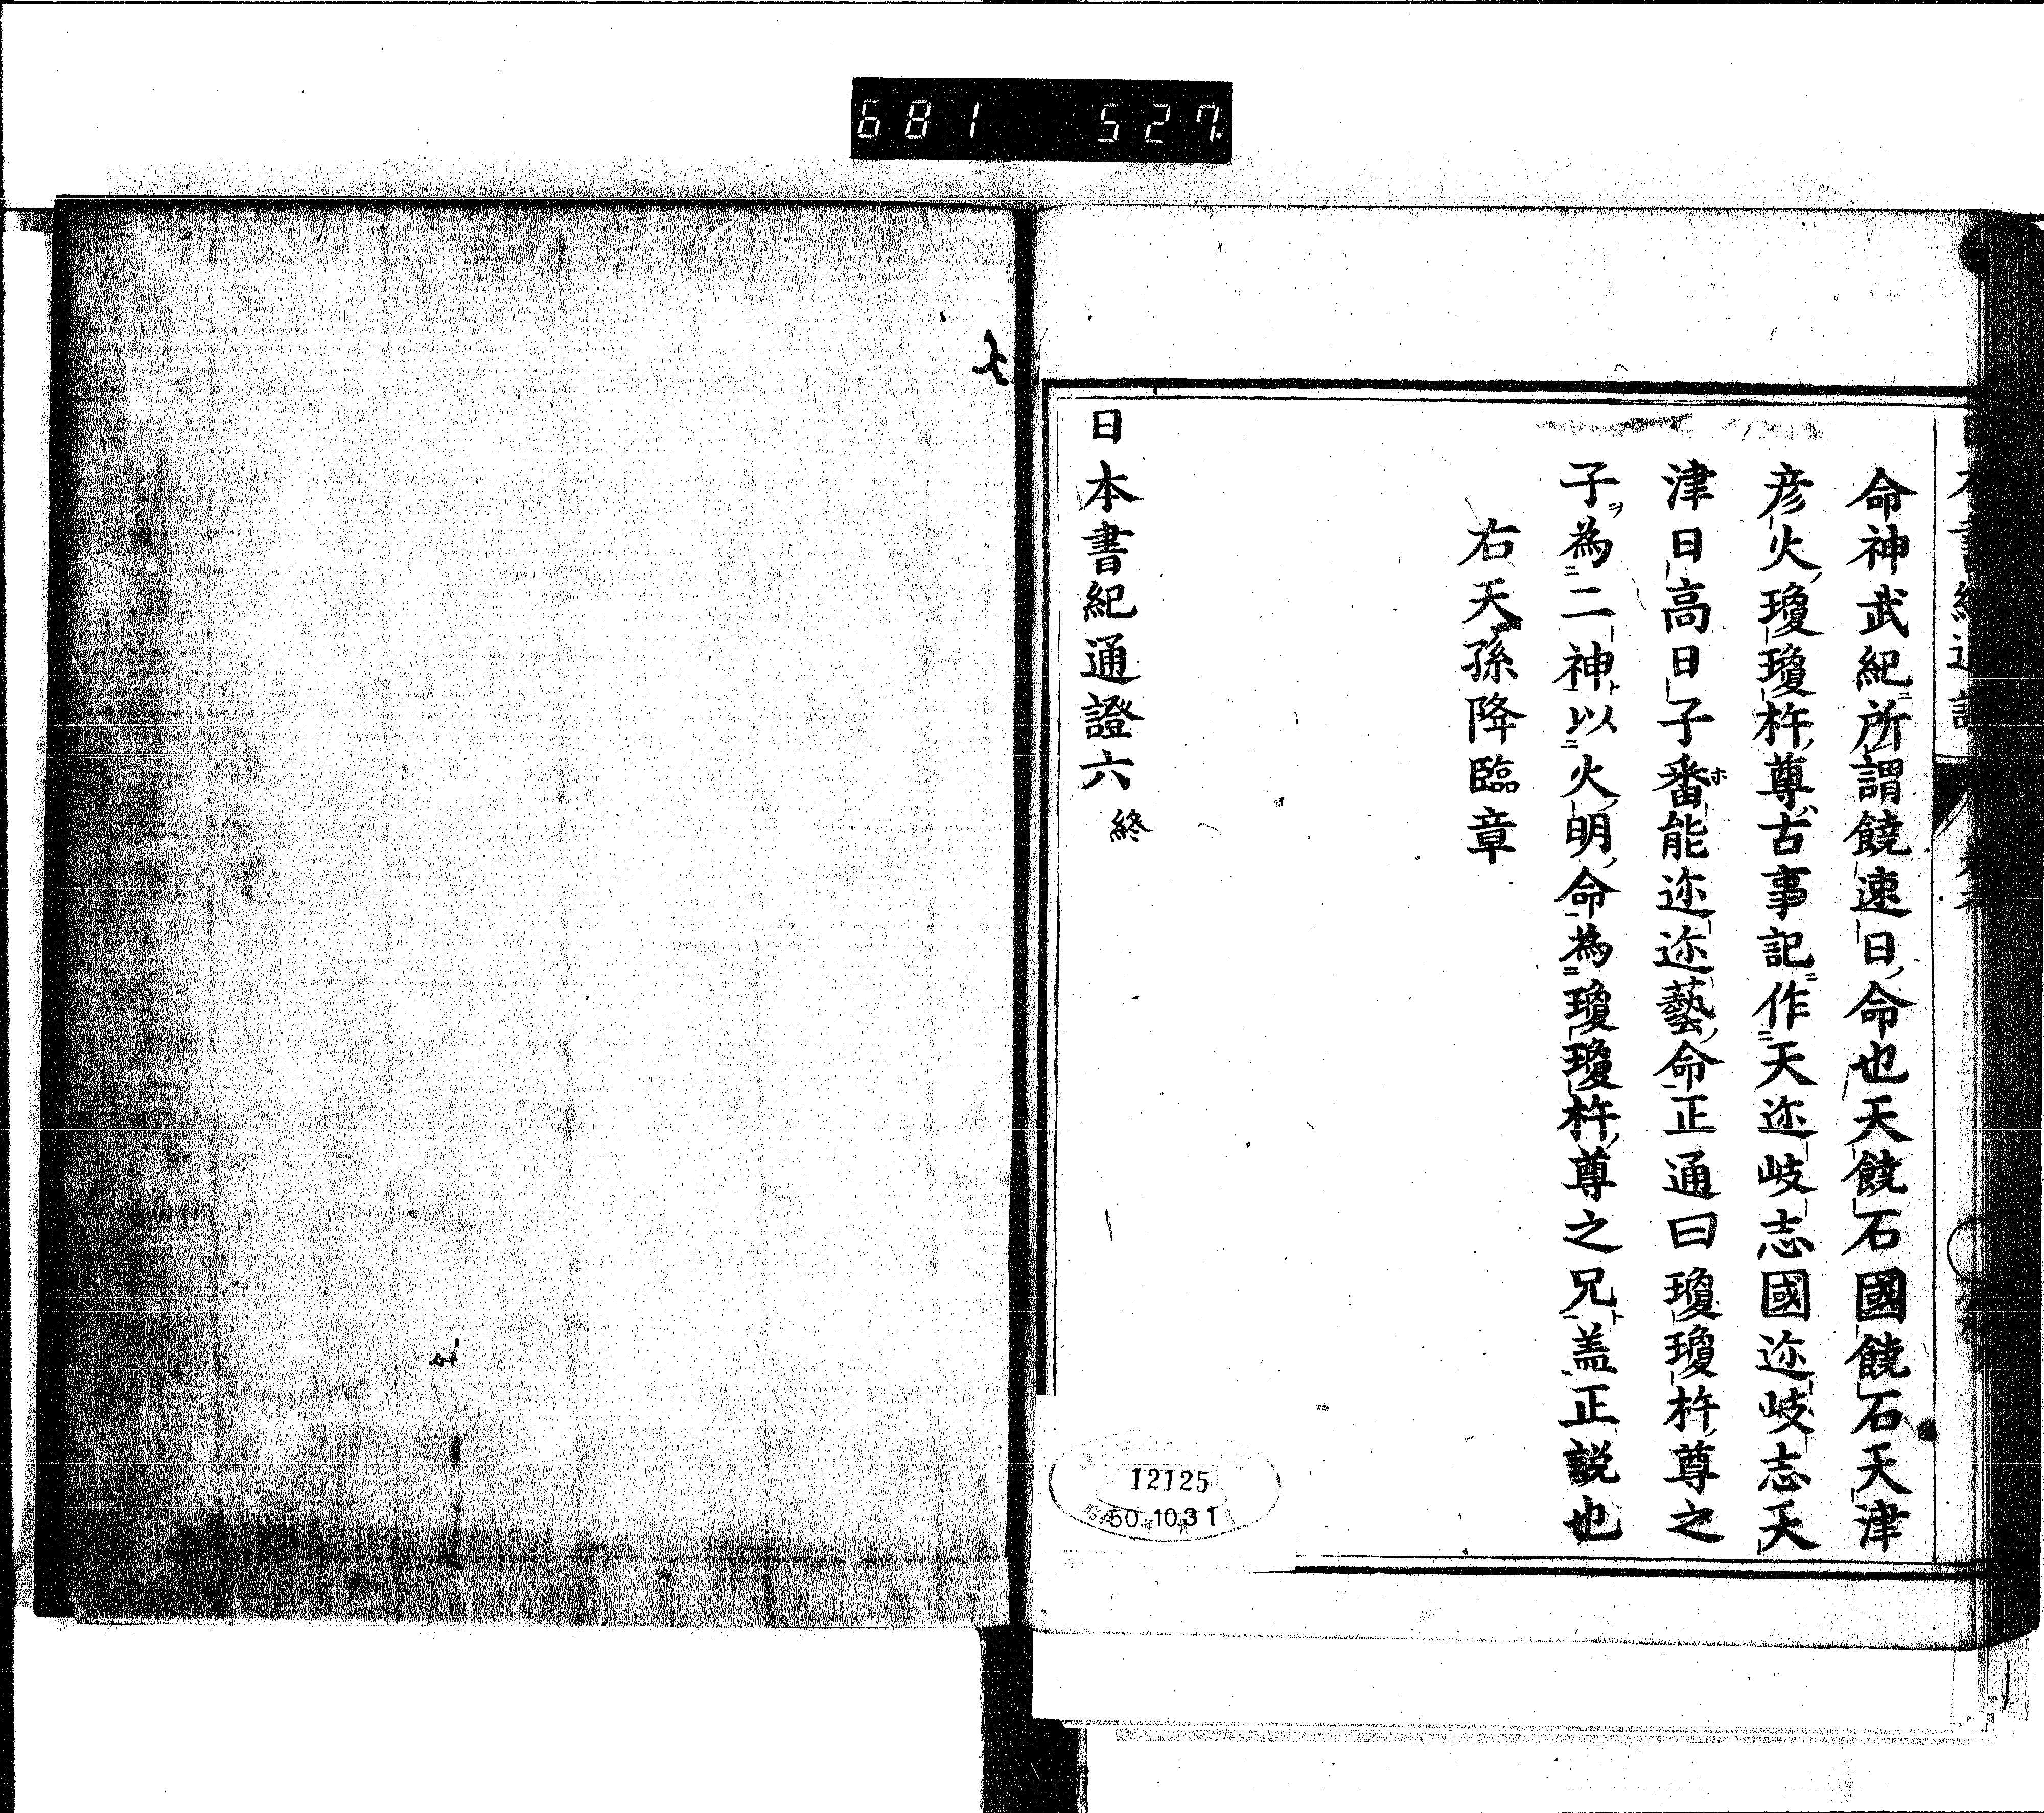 681 527
命神武紀ニ所謂饒速日命也天饒石國饒石天津
彦火瓊瓊杵尊古事記ニ作天迩岐志國迩岐志天
津日高日子番ホ能迩迩藝命正通曰瓊瓊杵尊之
子ヲ為二神ト以火明命為瓊瓊杵尊之兄ト盖正説也
右天孫降臨章
日本書紀通證六 終
12125
50.10.31